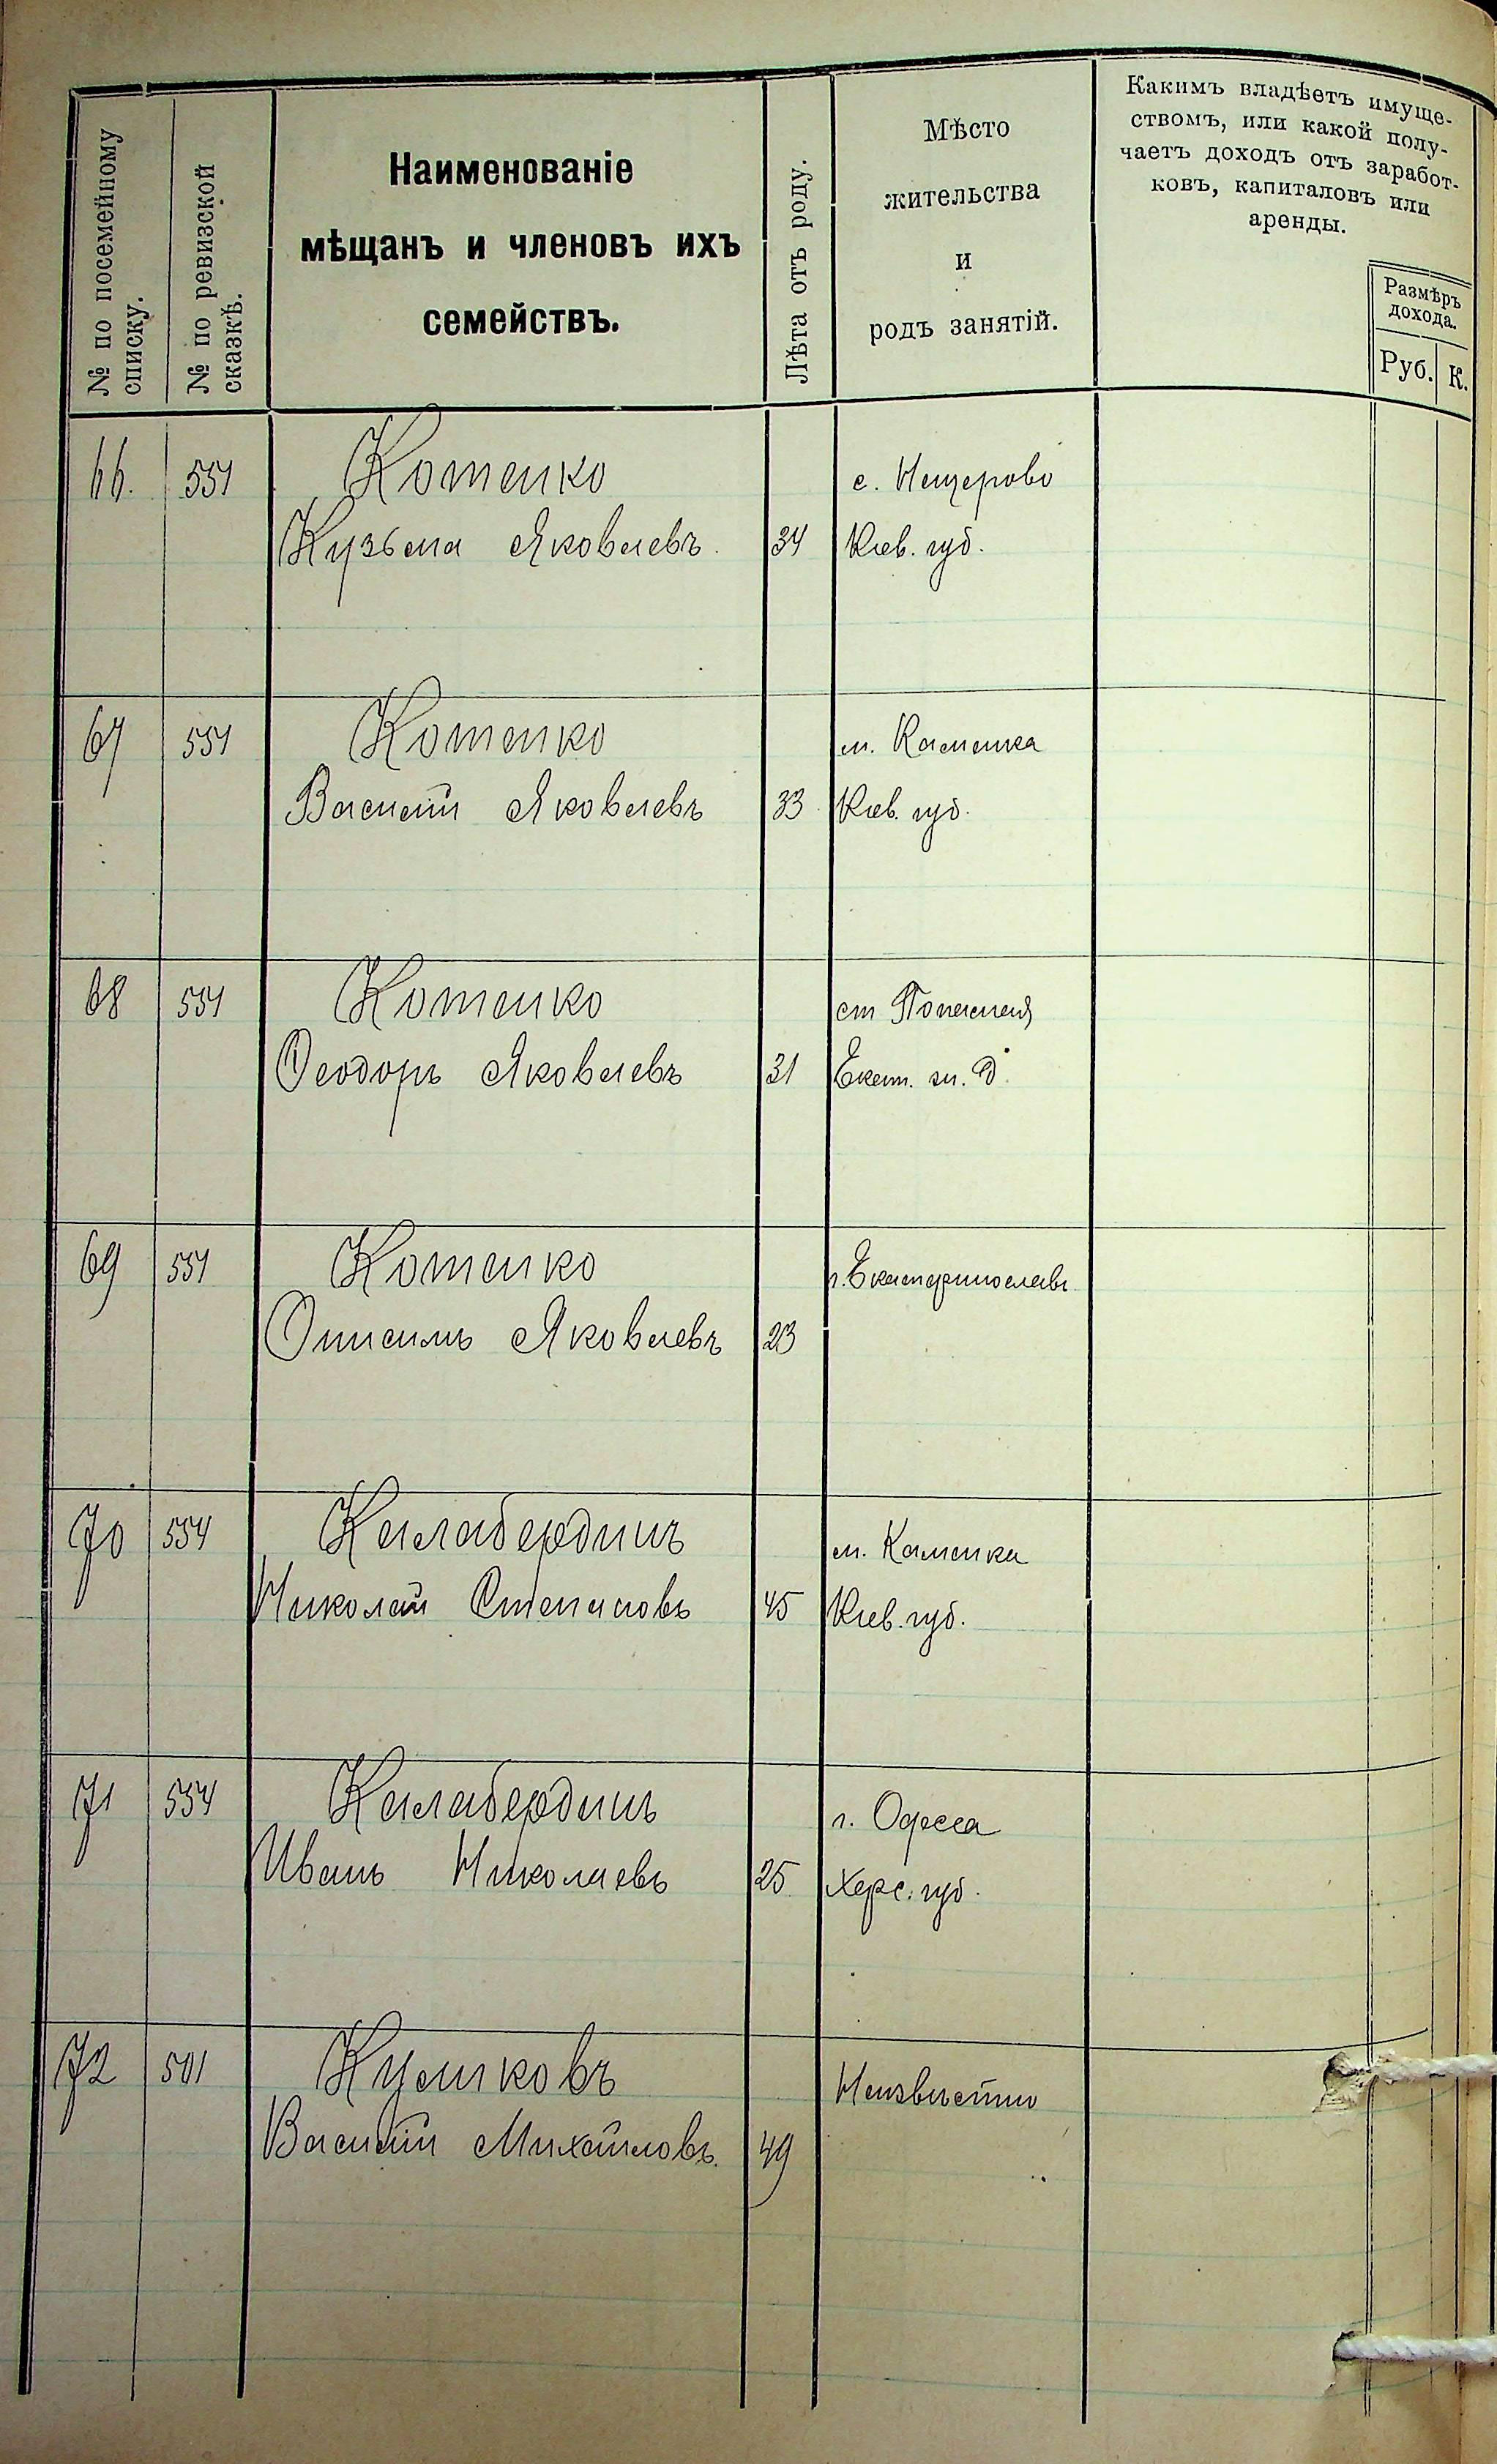 № по посемейному
списку.
№ по ревизской
сказкѣ.
Наименованіе
мѣщанъ и членовъ ихъ
семействъ.
Лѣта отъ роду.
Мѣсто
жительства
и
родъ занятій.
Какимъ владѣетъ имуще-
ствомъ, или какой полу-
чаетъ доходъ отъ заработ-
ковъ, капиталовъ или
аренды.
Размѣръ
дохода.
Руб. К.
66. 551 Котенко с. Нещерово
Кузьма Яковлевъ. 34 Кіев. губ.
67 551 Котенко м. Каменка
Василій Яковлевъ 33 Кіев. губ.
68 551 Котенко ст Попасная
Ѳеодоръ Яковлевъ 31 Екат. ж. д.
69 551 Котенко г. Екатеринославъ
Онисимъ Яковлевъ 23
70 554 Калабердинъ м. Каменка
Николай Степановъ 45 Кіев. губ.
71 554 Калабердинъ г. Одесса
Иванъ Николаевъ 25 Херс. губ.
72 501 Куликовъ Неизвѣстно
Василій Михайловъ. 49